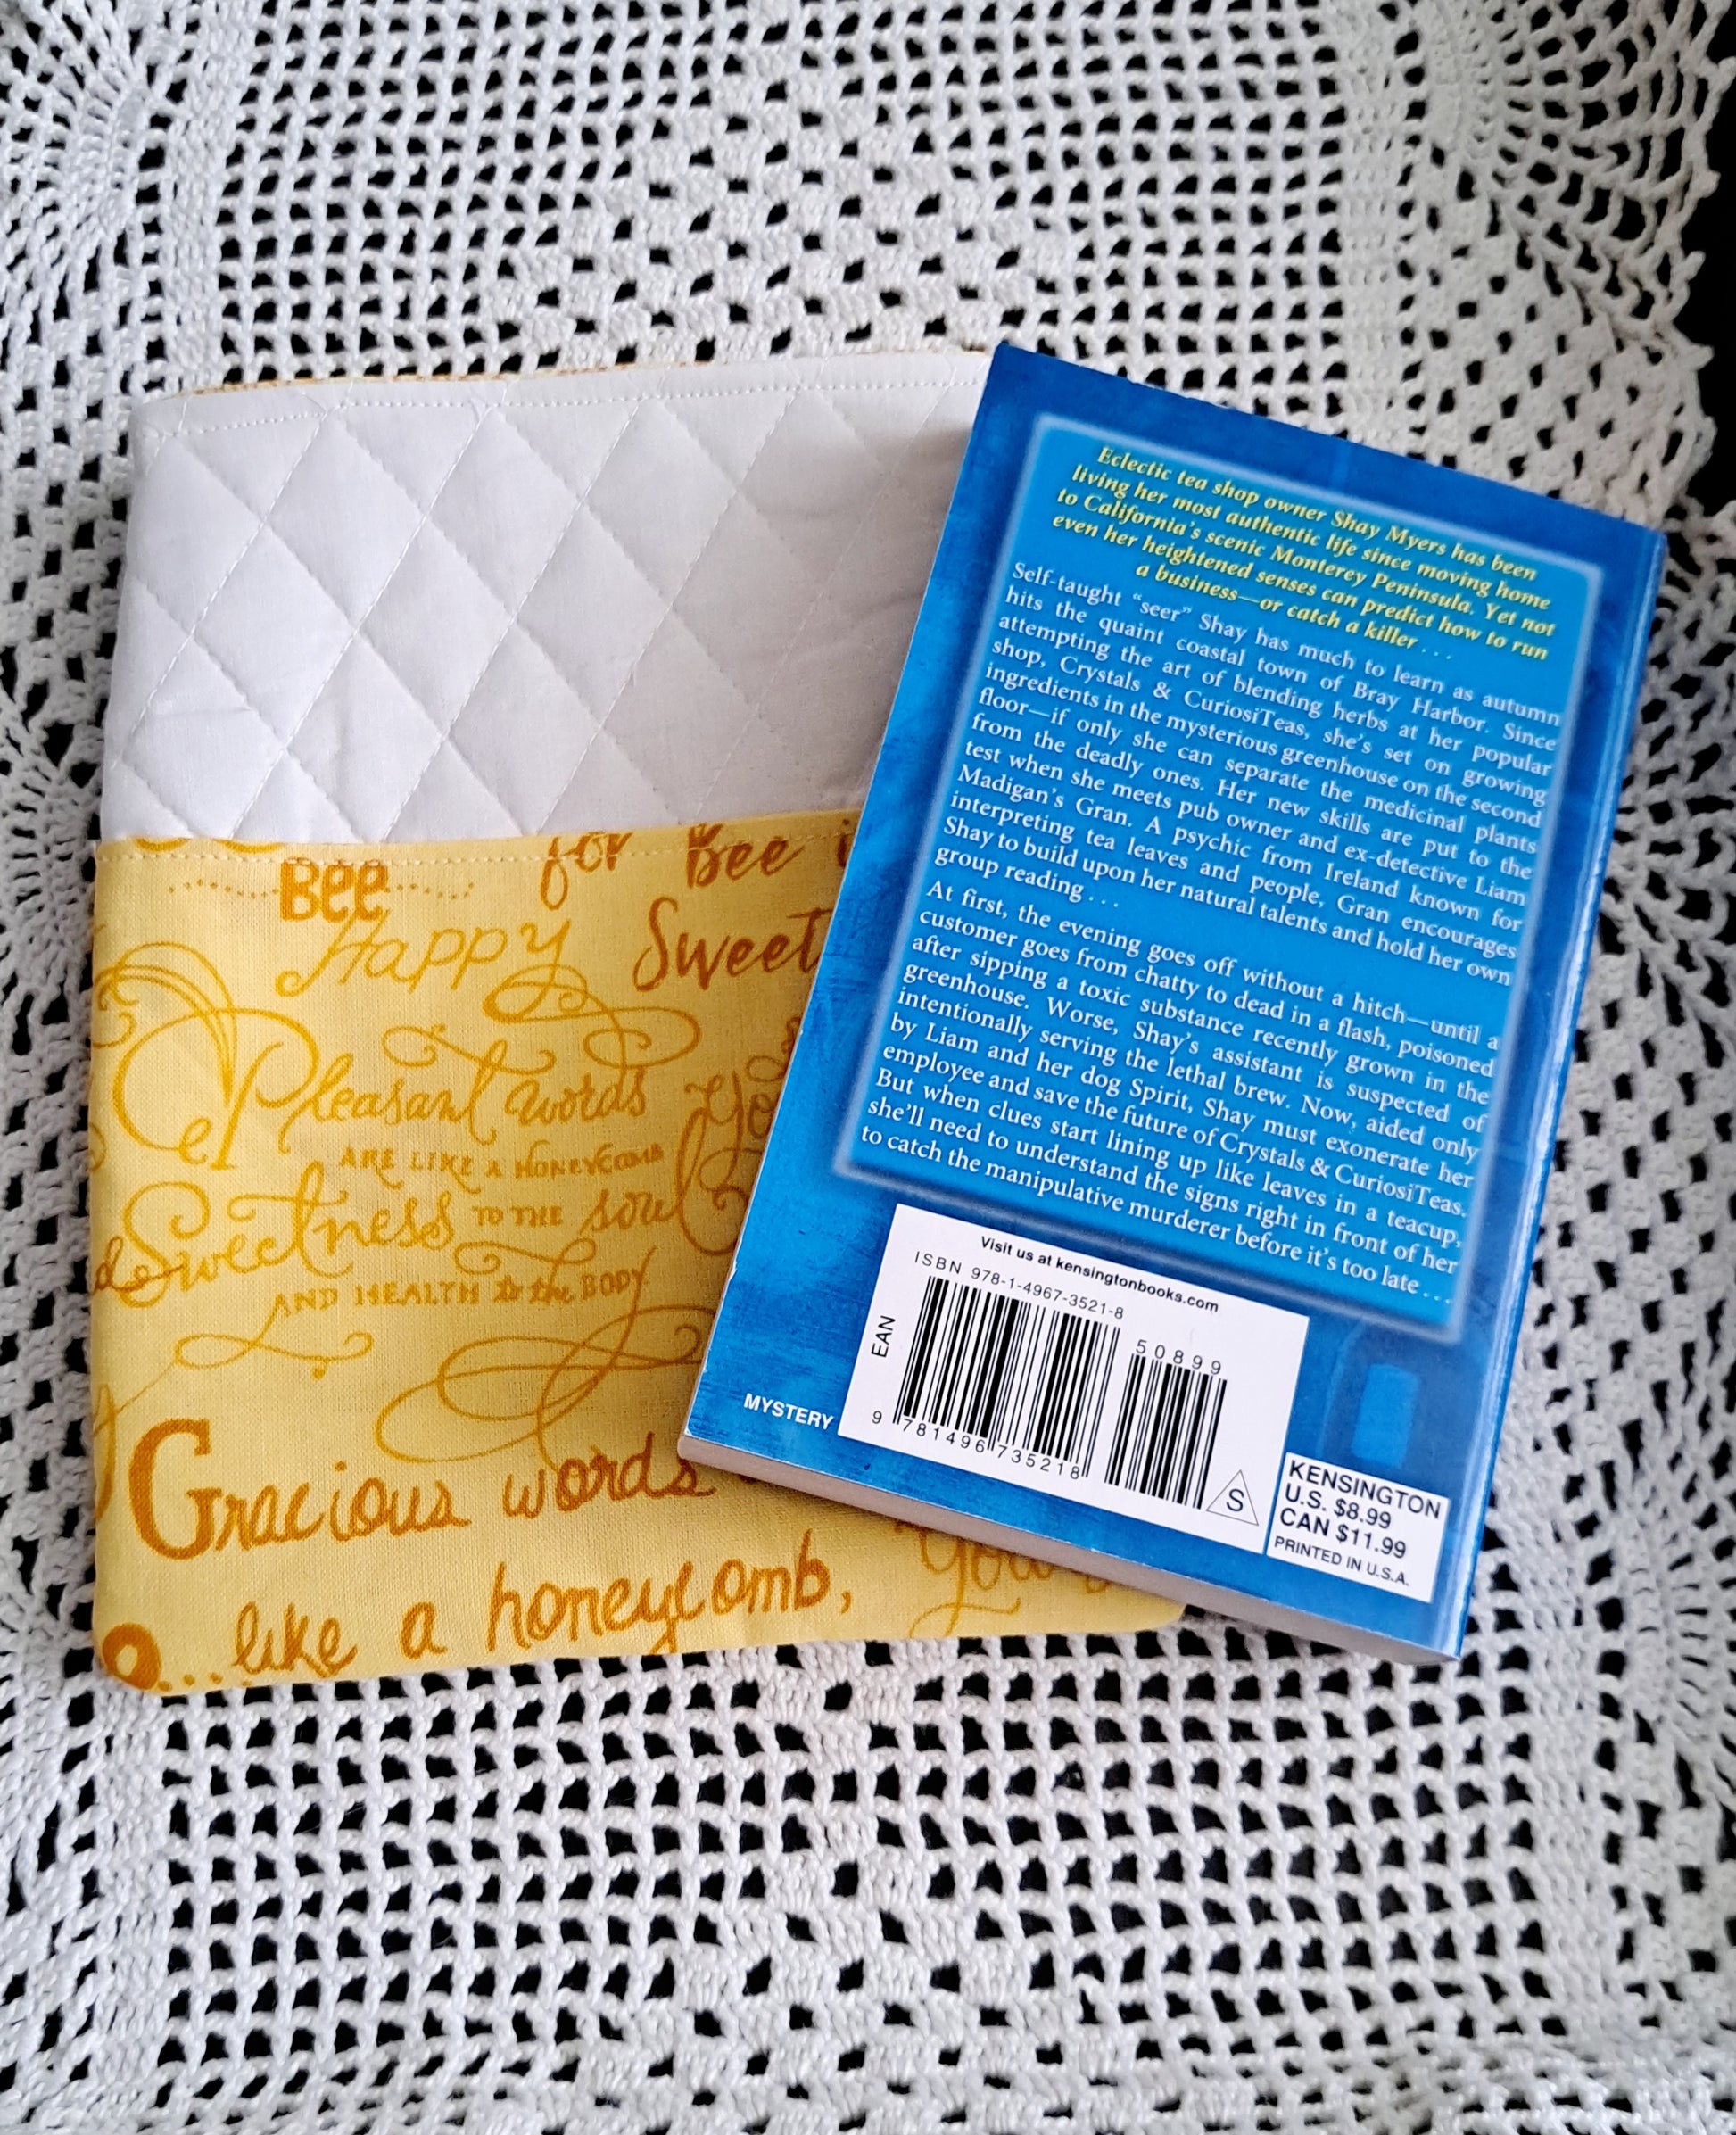 Bee
for Bee
Happy
Sweet
Pleasant words
ARE LIKE A HONEYCOMB
Sweetness TO THE soul
AND HEALTH to the BODY
Gracious words
like a honeycomb,
Eclectic tea shop owner Shay Myers has been
living her most authentic life since moving home
to California's scenic Monterey Peninsula. Yet not
even her heightened senses can predict how to run
a business—or catch a killer . . .
Self-taught “seer” Shay has much to learn as autumn
hits the quaint coastal town of Bray Harbor. Since
attempting the art of blending herbs at her popular
shop, Crystals & CuriosiTeas, she's set on growing
ingredients in the mysterious greenhouse on the second
floor—if only she can separate the medicinal plants
from the deadly ones. Her new skills are put to the
test when she meets pub owner and ex-detective Liam
Madigan's Gran. A psychic from Ireland known for
interpreting tea leaves and people, Gran encourages
Shay to build upon her natural talents and hold her own
group reading . . .
At first, the evening goes off without a hitch—until a
customer goes from chatty to dead in a flash, poisoned
after sipping a toxic substance recently grown in the
greenhouse. Worse, Shay's assistant is suspected of
intentionally serving the lethal brew. Now, aided only
by Liam and her dog Spirit, Shay must exonerate her
employee and save the future of Crystals & CuriosiTeas.
But when clues start lining up like leaves in a teacup,
she'll need to understand the signs right in front of her
to catch the manipulative murderer before it's too late . . .
Visit us at kensingtonbooks.com
ISBN 978-1-4967-3521-8
50899
EAN
9 781496 735218
S
MYSTERY
KENSINGTON
U.S. $8.99
CAN $11.99
PRINTED IN U.S.A.